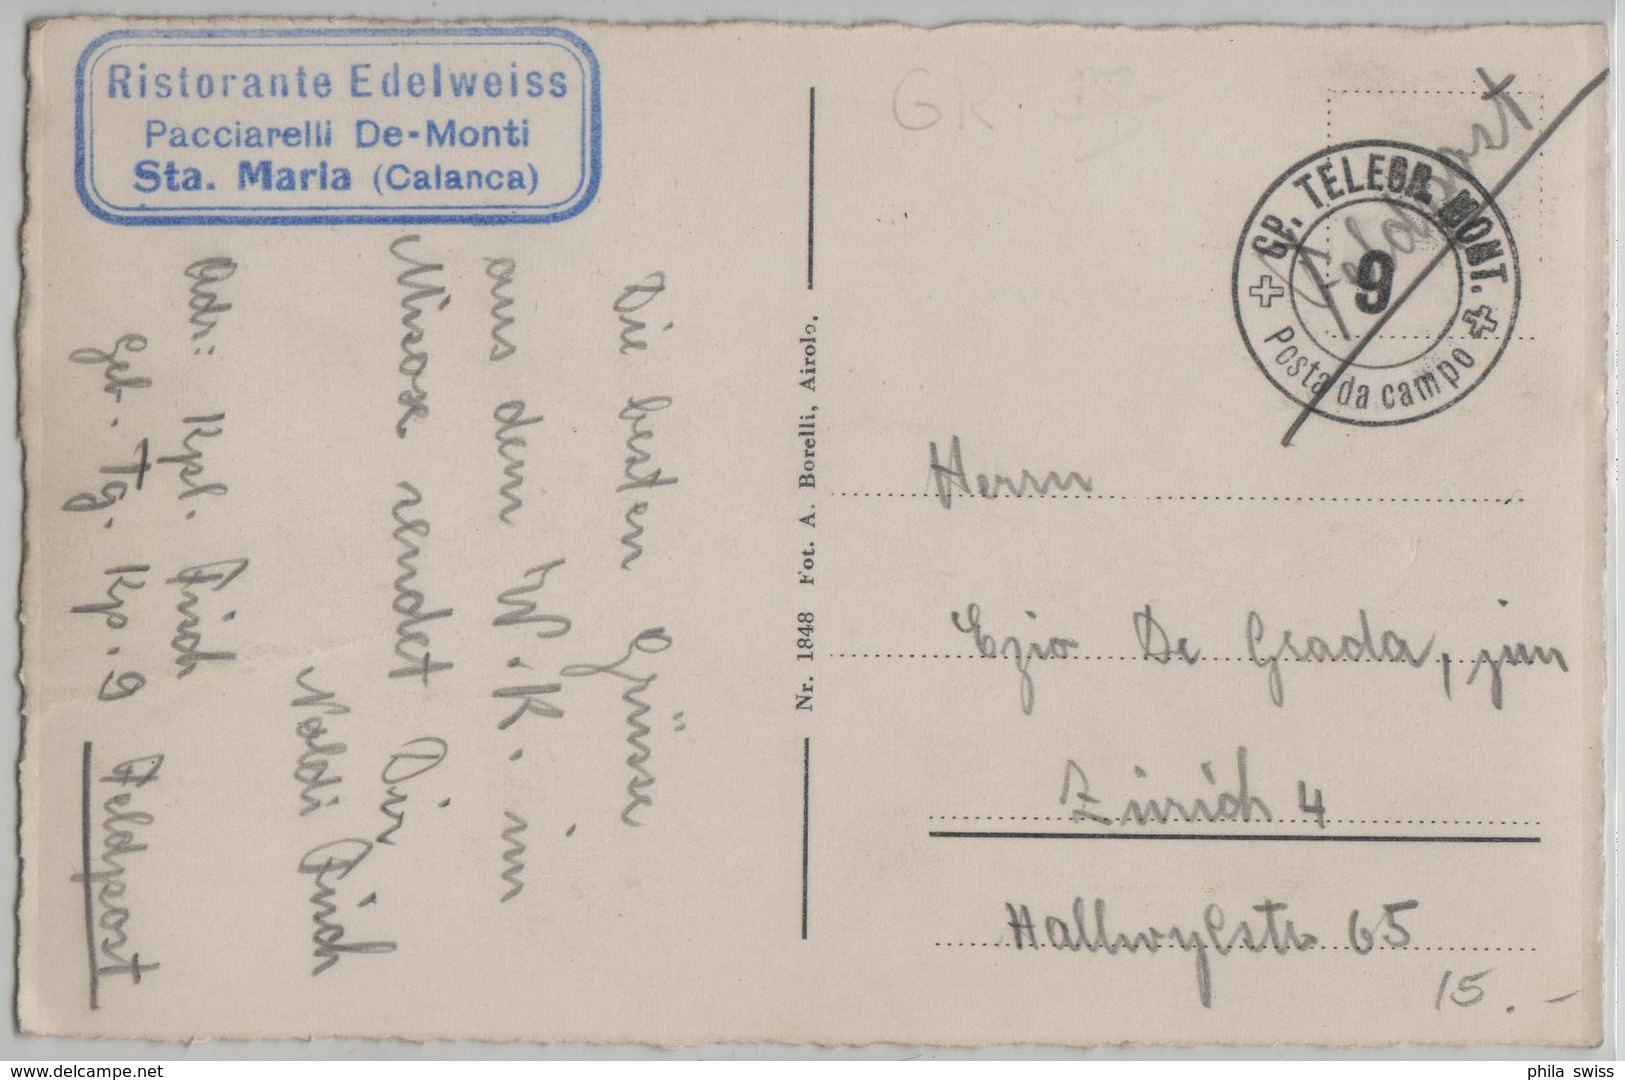 Ristorante Edelweiss
Pacciarelli De-Monti
Sta. Maria (Calanca)
Die besten Grüsse
aus dem W.K. im
Misox sendet Dir
Noldi Frich
Adr: Kpl. Frich
Geb. Tg. Kp. 9
Feldpost
Nr. 1848 Fot. A. Borelli, Airolo.
GK
Feldpost
GP. TELEGR. MONT.
9
Posta da campo
Herrn
Ezio De Grada, jun
Zürich 4
Hallwylstr 65
15.-
delcampe.net
phila swiss